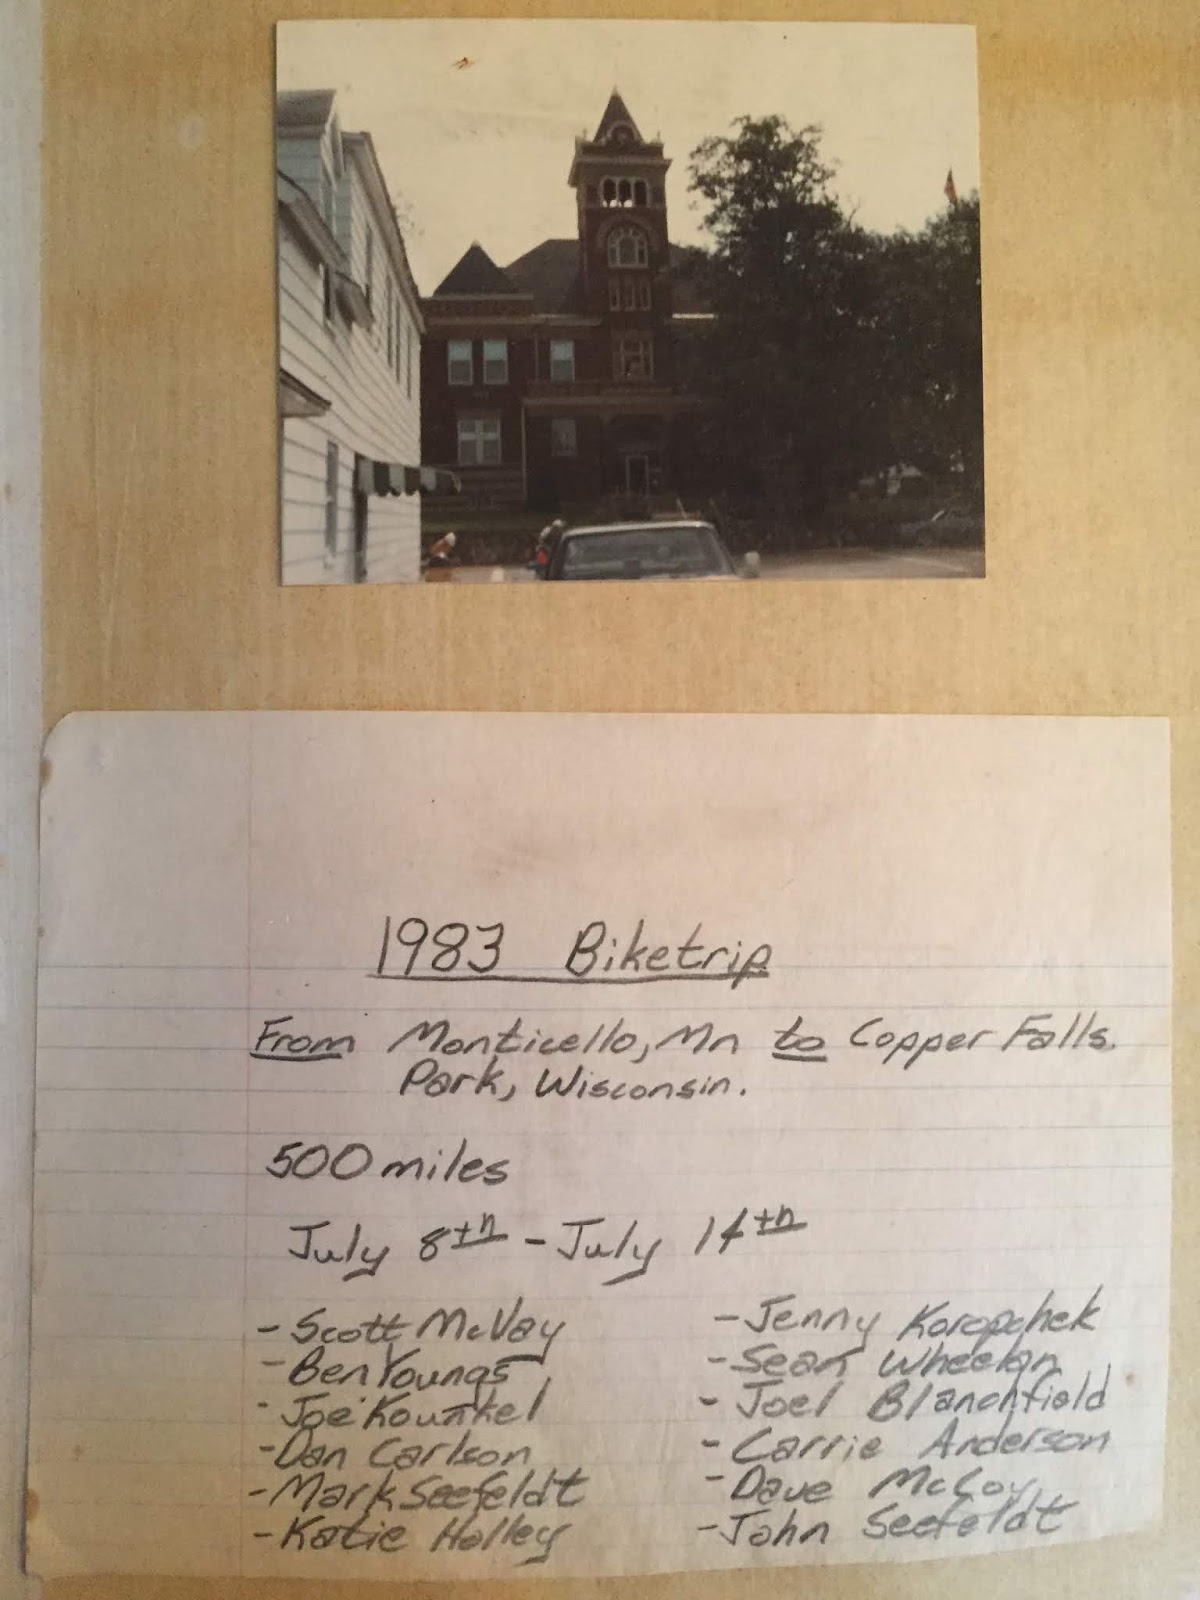 1983 Biketrip
From Monticello, Mn to Copper Falls
Park, Wisconsin.
500 miles
July 8th - July 14th
- Scott McVay
- Ben Youngs
- Joe Kounkel
- Dan Carlson
- Mark Seefeldt
- Katie Holley
- Jenny Koropchek
- Sean Wheelan
- Joel Blanchfield
- Carrie Anderson
- Dave McCoy
- John Seefeldt